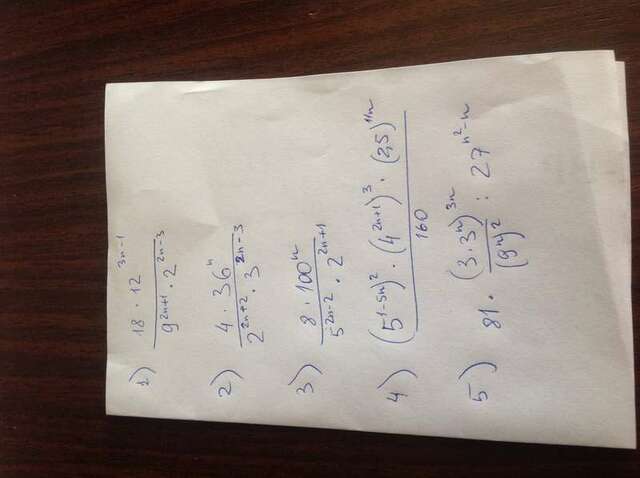 1) \frac{18 \cdot 12^{3n-1}}{9^{2n+1} \cdot 2^{2n-3}}
2) \frac{4 \cdot 36^{n}}{2^{2n+2} \cdot 3^{2n-3}}
3) \frac{8 \cdot 100^{n}}{5^{2n-2} \cdot 2^{2n+1}}
4) \frac{(5^{1-5n})^{2} \cdot (4^{2n+1})^{3} \cdot (2,5)^{11n}}{160}
5) 81 \cdot \frac{(3 \cdot 3^{n})^{3n}}{(9^{n})^{2}} : 27^{n^{2}-n}